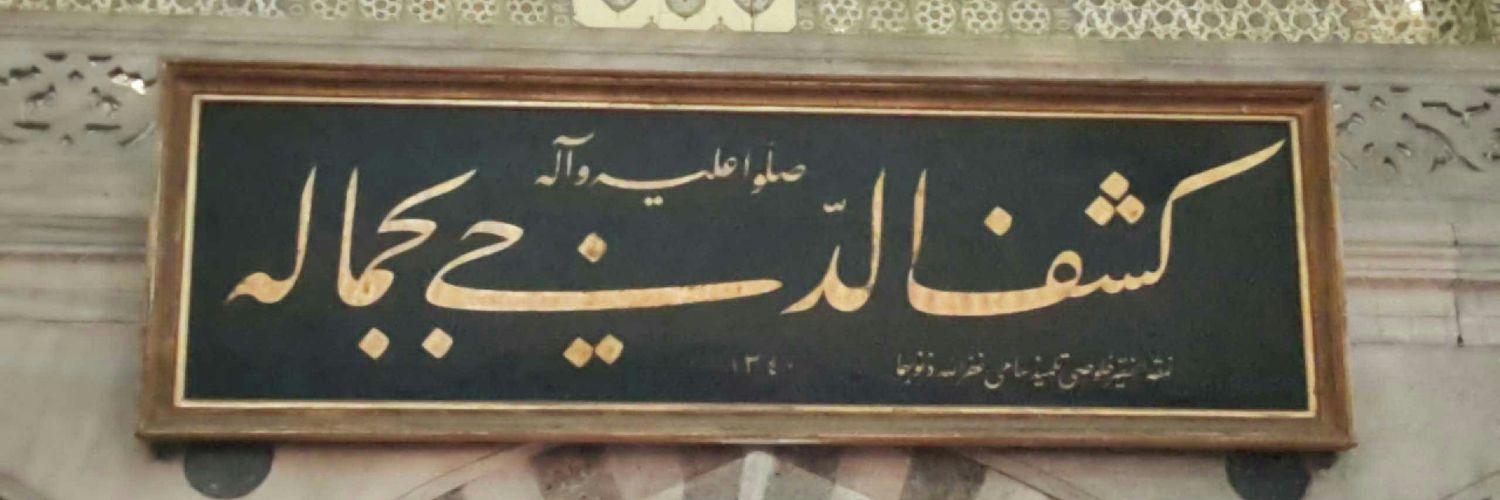 صلّوا عليه وآله
كشف الدّجي بجماله
نمقه الفقير خلوصي تلميذ سامي غفر الله ذنوبهما ١٣٤٠